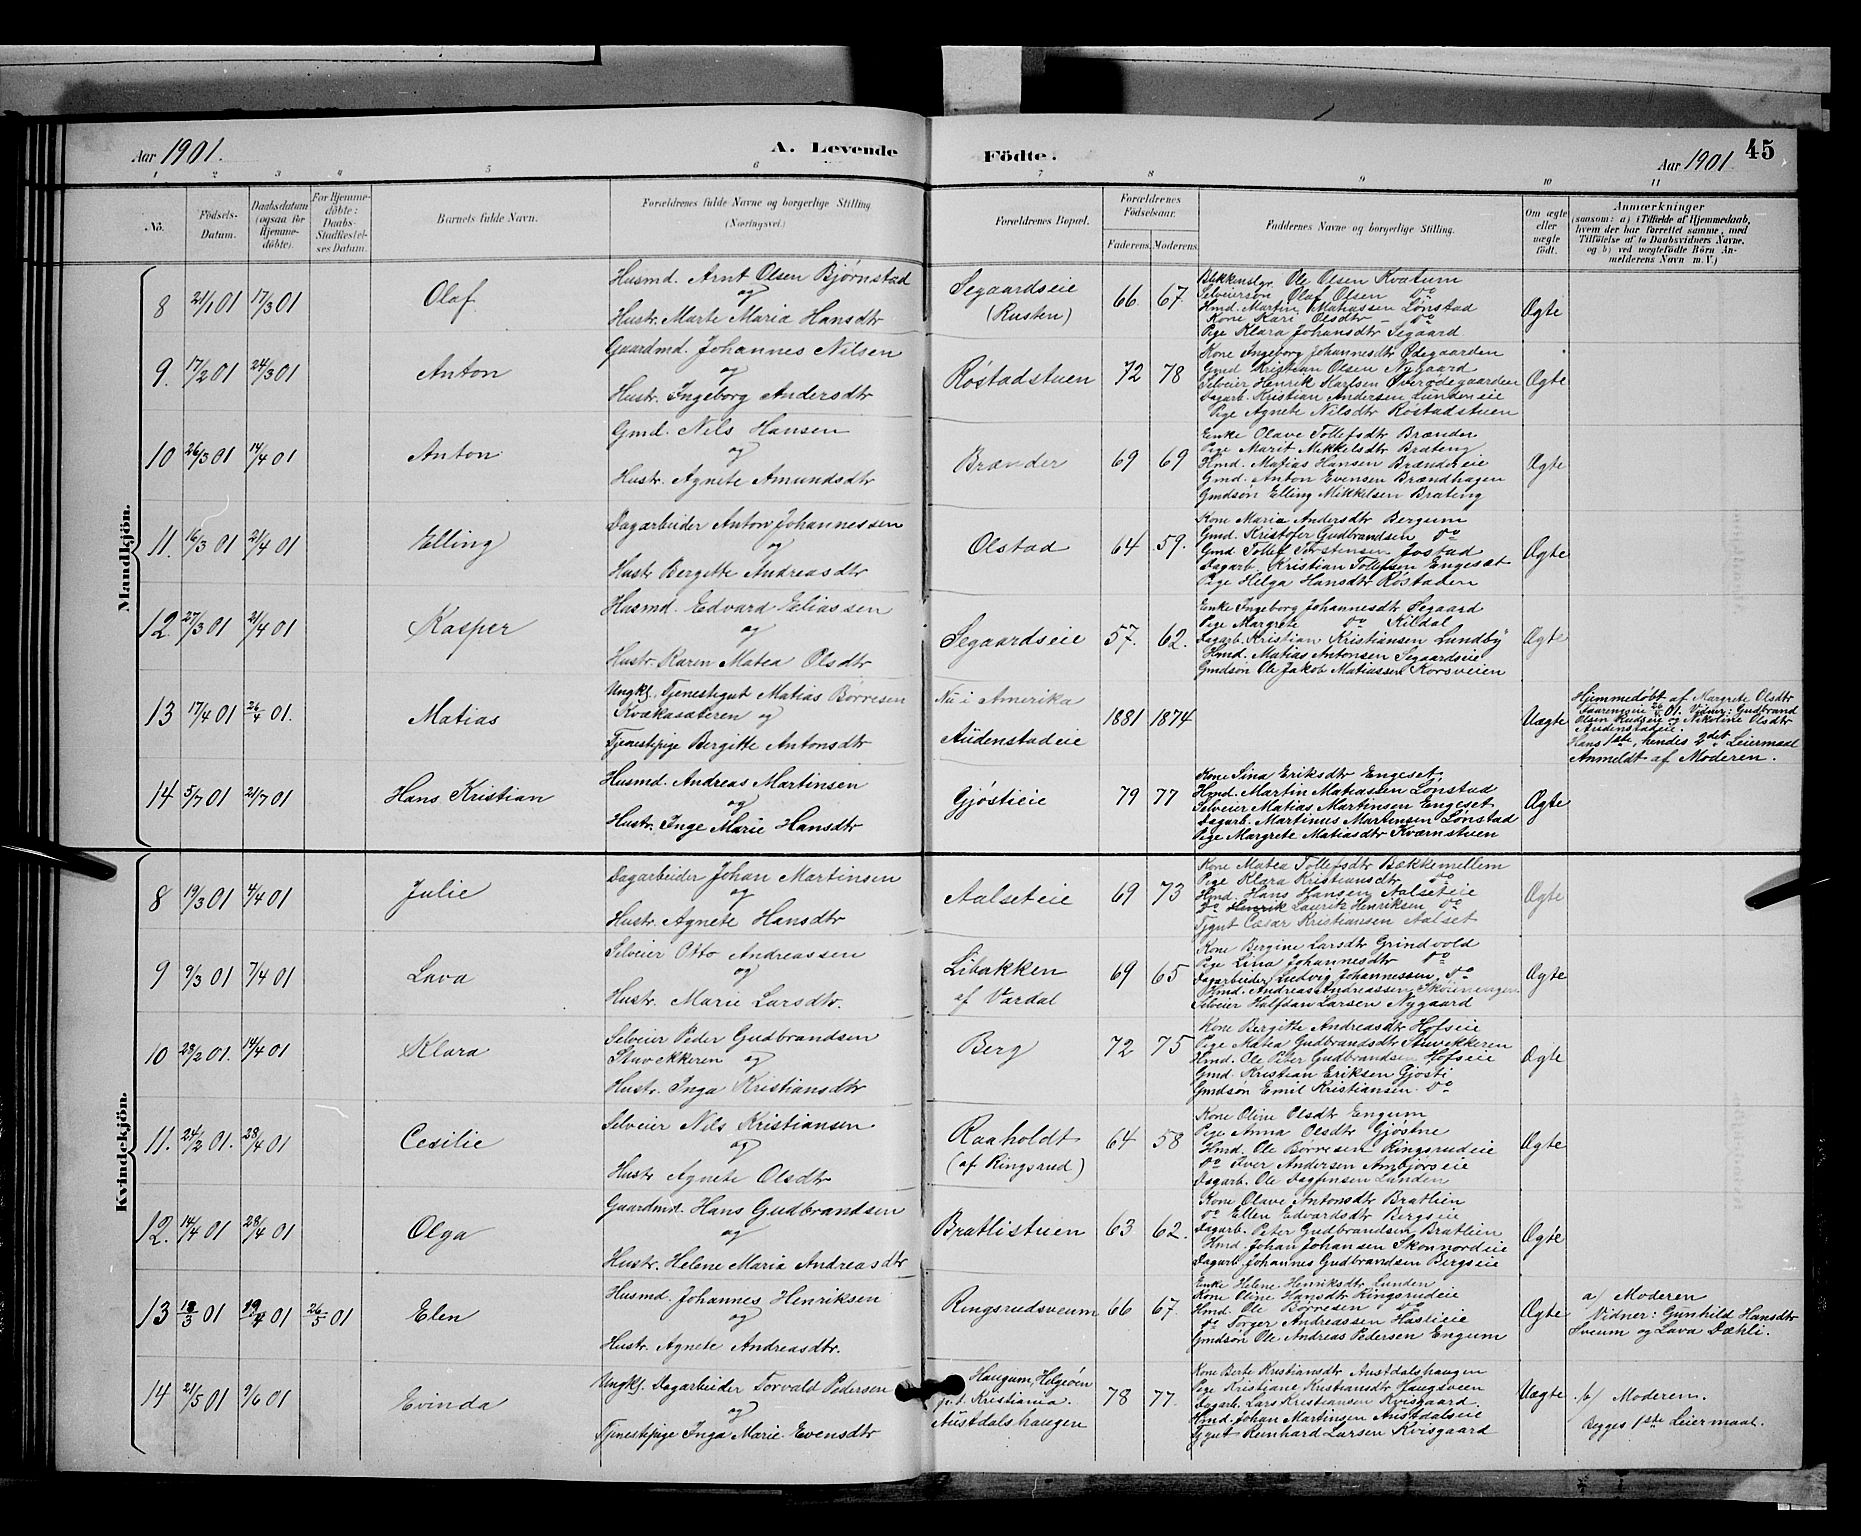 Aar 1901.
A. Levende
Fødte.
Aar 1901
45
1 2 3 4 5 6 7 8 9 10 11
No.
Fødsels-Datum.
Daabsdatum (ogsaa for Hjemmedöbte).
For Hjemmedöbte: Daabs-Stadfæstelses Datum.
Barnets fulde Navn.
Forældrenes fulde Navne og borgerlige Stilling (Næringsvei.)
Forældrenes Bopæl.
Forældrenes Fødselsaar.
Faderens. Moderens.
Faddernes Navne og borgerlige Stilling.
Om ægte eller uægte født.
Anmærkninger
(saasom: a) i Tilfælde af Hjemmedaab, hvem der har forrettet samme, med Tilføielse af to Daabsvidners Navne, og b) ved uægtefødte Börn Anmelderens Navn m. V.)
Mandkjön.
8 21/1 01 17/3 01 Olaf
Husmd. Arnt Olsen Bjørnstad
og
Hustr. Marte Maria Hansdtr
Segaardseie
(Rusten)
66 67
Blikkenslgr. Ole Olsen Kvatum
Selveiersøn Olaf Olsen do
Hmd. Martin Matiassen Lønstad
Kone Kari Olsdtr - do
Pige Klara Johansdtr Segaard
Ægte
9. 17/2 01 24/3 01 Anton
Gaardmd. Johannes Nilsen
og
Hustr. Ingeborg Andersdtr
Røstadstuen 72 78
Kone Ingeborg Johannesdtr Ødegaarden
Gmd Kristian Olsen Nygaard
Selveier Henrik Karlsen Øverødegaarden
Dagarb. Kristian Andersen Lundeneie
Pige Agnete Nilsdtr Røstadstuen
Ægte
10 26/3 01 14/4 01 Anton
Gmd. Nils Hansen
og
Hustr. Agnete Amundsdtr
Brænder 69 69
Enke Olave Tollefsdtr Brænder
Pige Marit Mikkelsdtr Brateng
Hmd. Matias Hansen Brændereie
Gmd. Anton Evensen Brændhagen
Gmdsøn Elling Mikkelsen Brateng
Ægte
11. 16/3 01 21/4 01 Elling
Dagarbeider Anton Johannessen
og
Hustr Bergitte Andreasdtr
Olstad 64 59.
Kone Maria Andersdtr Bergum
Gmd. Kristofer Gudbrandsen do
Gmd Tollef Torstensen Jostad
Dagarb. Kristian Tollefsen Engeset
Pige Helga Hansdtr Røstaden
Ægte
12. 27/3 01 21/4 01 Kasper
Husmd. Edvard Eliassen
og
Hustr. Karen Matea Olsdtr
Segaardseie 57. 62.
Enke Ingeborg Johannesdtr Segaard
Pige Margrete do Kildal
Dagarb. Kristian Kristiansen Lundby
Hmd. Matias Antonsen Segaardseie
Gmdsøn Ole Jakob Matiassen Korsveien
Ægte
13 17/4 01 26/4 01. Matias
Ungkl. Tjenestegut Matias Børresen
Kvækasæteren og
Tjenestepige Bergitte Antonsdtr
Nu i Amerika
Audenstadeie
1881 1874
Uægte
Hjemmedøbt af Margrete Olsdtr
Faareneie 26/4 01. Vidner: Gudbrand
Olsen Rudseie og Nikoline Olsdtr
Audenstadeie.
Hans 1ste, hendes 2det Leiermaal
Anmeldt af Moderen.
14 5/7 01 21/7 01 Hans Kristian
Husmd. Andreas Martinsen
og
Hustr. Inge Marie Hansdtr
Gjøstieie 79 77
Kone Sina Eriksdtr Engeset,
Hmd. Martin Matiassen Lønstad
Selveier Matias Martinsen Engeset
Dagarb. Martinus Martensen Lønstad
Pige Margrete Matiasdtr Kværnstuen
Ægte
Kvindekjön.
8 19/3 01 4/4 01 Julie
Dagarbeider Johan Martinsen
og
Hustr. Agnete Hansdtr
Aalseteie 69 73
Kone Matea Tollefsdtr Bækkemellem
Pige Klara Kristiansdtr do
Hmd. Hans Hansen Aalseteie
do Henrik Lauritz Henriksen do
Tjgut Cæsar Kristiansen Aalset
Ægte
9 9/3 01 7/4 01 Lava
Selveier Otto Andreassen
og
Hustr. Marie Larsdtr.
Libakken
af Vardal
69 65
Kone Bergine Larsdtr Grindvold
Pige Lina Johannesdtr do
Dagarbeider Ludvig Johannessen do
Hmd. Andreas Andreassen Skoienengen
Selveier Halfdan Larsen Nygaard
Ægte
10 28/2 01. 14/4 01 Klara
Selveier Peder Gudbrandsen
Stuvekkeren og
Hustr. Inga Kristiansdtr
Berg 72 75
Kone Bergitte Andreasdtr Hofseie
Pige Matea Gudbrandsdtr Stuvekkeren
Hmd. Ole Peter Gudbrandsen Hofseie
Gmd. Kristian Eriksen Gjøsti
Gmdsøn Emil Kristiansen do
Ægte
11. 24/2 01. 28/4 01 Cecilie
Selveier Nils Kristiansen
og
Hustr Agnete Olsdtr
Raaholdt
(af Ringsrud)
64 58
Kone Oline Olsdtr Engum
Pige Anna Olsdtr Gjøstne
Hmd. Ole Børresen Ringsrudeie
do Iver Andersen Ambjørseie
Dagarb. Ole Dagfinsen Lunden
Ægte
12. 14/4 01 28/4 01 Olga
Gaardmd. Hans Gudbrandsen
og
Hustr. Helene Maria Andreasdtr
Bratlistuen 63 62.
Kone Olave Antonsdtr Bratlien
do Ellen Edvardsdtr Bergseie
Dagarb. Peter Gudbrandsen Bratlien
Hmd. Johan Johansen Skonnordeie
Dagarb Johannes Gudbrandsen Bergseie
Ægte
13 18/3 01 19/4 01 26/5 01 Elen
Husmd. Johannes Henriksen
og
Hustr. Agnete Andreasdtr.
Ringsrudsveum 66 67.
Enke Helene Henriksdtr Lunden
Kone Oline Hansdtr Ringsrudeie
Hmd. Ole Børresen do
do Torger Andreassen Hastieie
Gmdsøn Ole Andreas Pedersen Engum
Ægte
a) Moderen
Vidner: Gunhild Hansdtr
Sveum og Lava Dæhli.
14 21/5 01 9/6 01 Evinda
Ungkl. Dagarbeider Torvald Pedersen
og
Tjenestepige Inga Marie Evensdtr
Haugum, Helgøen
p.t. Kristiania.
Austdalshaugen
78 77.
Kone Berte Kristiansdtr Austdalshaugen
Pige Kristiane Kristiansdtr Haugsveen
Dagarb. Lars Kristiansen Kvisgaard
Hmd. Johan Martinsen Austdalseie
Tjgut Reinhard Larsen Kvisgaard
Uægte
b) Moderen.
Begges 1ste Leiermaal.